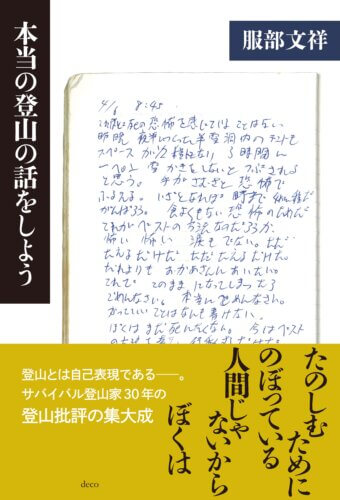 本当の登山の話をしよう
服部文祥
4/6 8:45
死の恐怖を感じていることはない
昨晩 夜半につくった半雪洞内のテントも
スペースが1/2程になり 3時間に
一ぺん 雪かきをしないと つぶされる
と思う。手がさむさと恐怖で
ふるえる。いざとなれば
がんばろう。食よくもない 恐怖のためだ
これがベストの方法なのだろうか
怖い 怖い 涙もでない。ただ
たえるだけだ ただたえるだけだ。
だれよりも おかあさんに あいたい。
このまま になってしまったら
ごめんなさい。本当にごめんなさい。
かっこいいことはなにも書けない。
ぼくは まだ 死にたくない。今はベスト
たのしむ
ために
のぼっている
人間じゃ
ないから
ぼくは
登山とは自己表現である――。
サバイバル登山家30年の
登山批評の集大成
deco